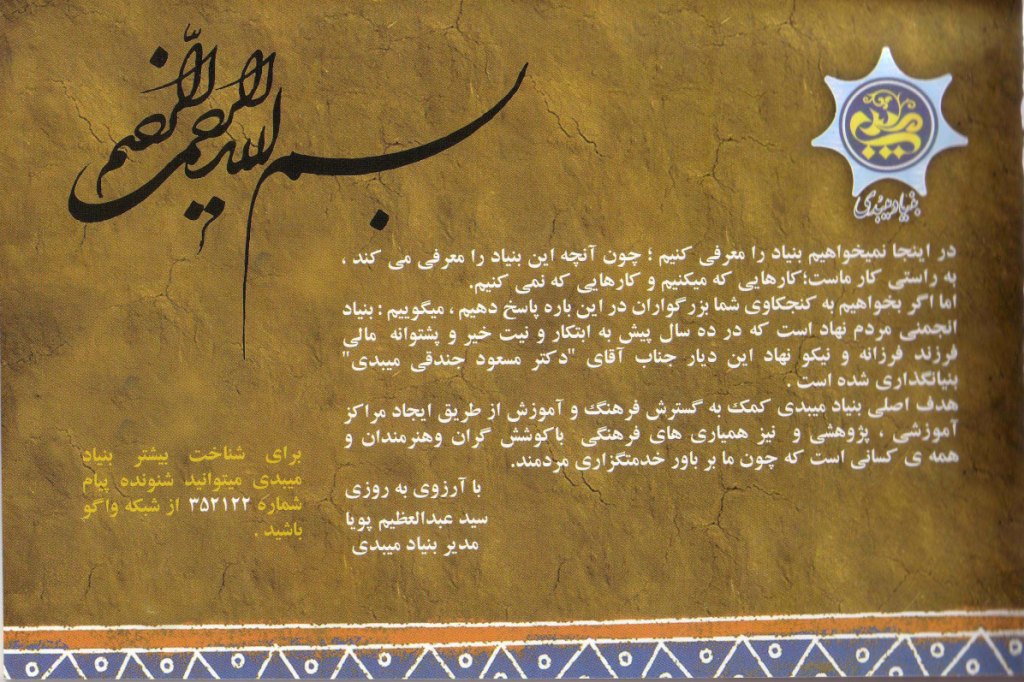 بسم الله الرحمن الرحیم
میبدی
بنیاد میبدی
در اینجا نمیخواهیم بنیاد را معرفی کنیم ؛ چون آنچه این بنیاد را معرفی می کند ،
به راستی کار ماست؛کارهایی که میکنیم و کارهایی که نمی کنیم.
اما اگر بخواهیم به کنجکاوی شما بزرگواران در این باره پاسخ دهیم ، میگوییم : بنیاد
انجمنی مردم نهاد است که در ده سال پیش به ابتکار و نیت خیر و پشتوانه مالی
فرزند فرزانه و نیکو نهاد این دیار جناب آقای "دکتر مسعود جندقی میبدی"
بنیانگذاری شده است .
هدف اصلی بنیاد میبدی کمک به گسترش فرهنگ و آموزش از طریق ایجاد مراکز
آموزشی ، پژوهشی و نیز همیاری های فرهنگی باکوشش گران وهنرمندان و
همه ی کسانی است که چون ما بر باور خدمتگزاری مردمند.
با آرزوی به روزی
سید عبدالعظیم پویا
مدیر بنیاد میبدی
برای شناخت بیشتر بنیاد
میبدی میتوانید شنونده پیام
شماره ۳۵۲۱۲۲ از شبکه واگو
باشید .